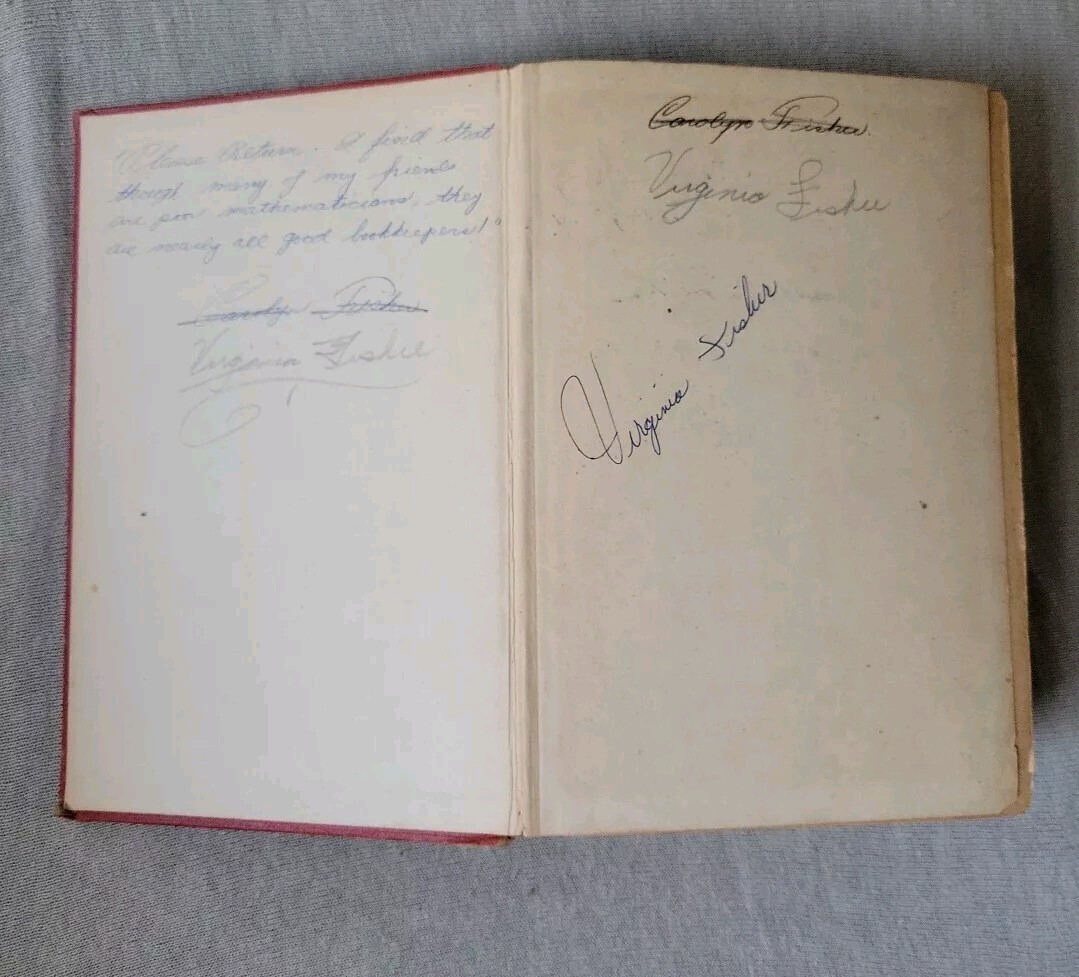 "Please Return. I find that
though many of my friends
are poor mathematicians, they
are nearly all good bookkeepers!"
Carolyn Fisher
Virginia Fisher
Carolyn Fisher.
Virginia Fisher
Virginia Fisher